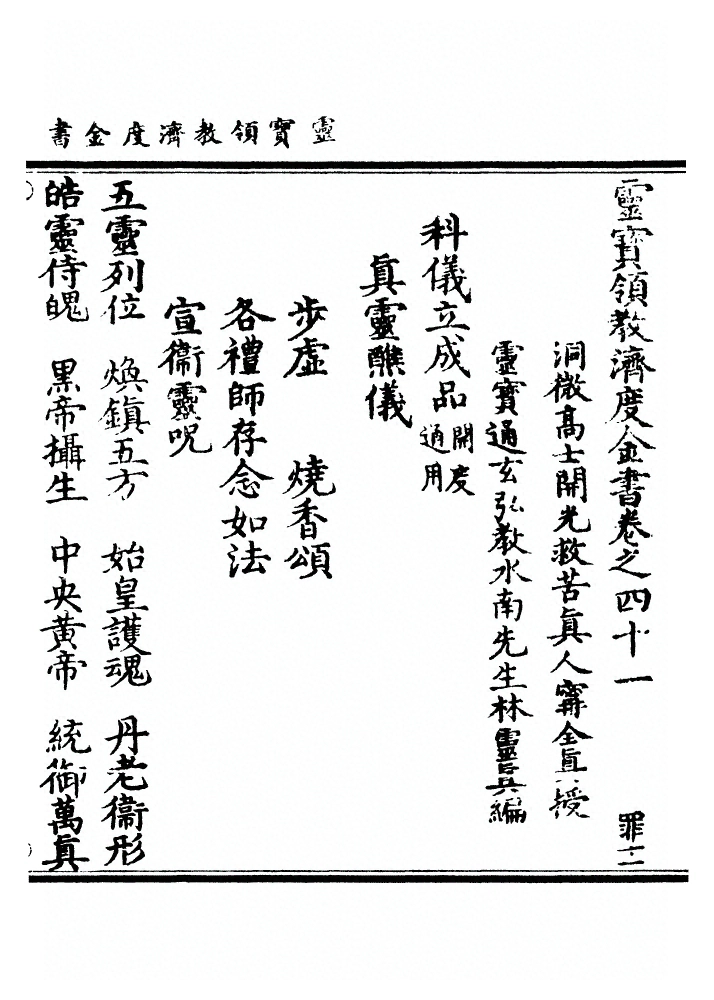 靈寶領教濟度金書
靈寶領教濟度金書卷之四十一　罪十二
洞微高士開光救苦眞人甯全眞授
靈寶通玄弘教水南先生林靈眞編
科儀立成品開度通用
眞靈醮儀
步虛　燒香頌
各禮師存念如法
宣衞靈呪
五靈列位　煥鎮五方　始皇護魂　丹老衞形
皓靈侍魄　黒帝攝生　中央黄帝　統御萬眞